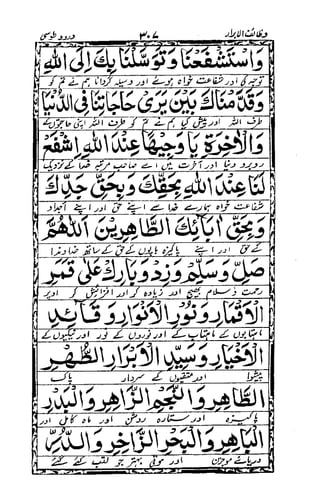 وظائف الابرار ۳۰۷ درود طوسی
وَاسْتَشْفَعْنَا وَتَوَسَّلْنَا بِكَ اِلَى اللهِ
اور شفاعت خواہ ہوئے اور وسیلہ گردانا ہم نے تم کو
وَقَدَّمْنَاكَ بَيْنَ يَدَىْ حَاجَاتِنَا فِى الدُّنْيَا
طرف اللہ اور پیش کیا ہم نے تم کو طرف اللہ اپنی حاجتوں کے
وَالْاٰخِرَةِ يَا وَجِيْهًا عِنْدَ اللهِ اِشْفَعْ
روبرو دنیا اور آخرت میں اے صاحب مرتبہ خدا کے نزدیک
لَنَا عِنْدَ اللهِ بِحَقِّكَ وَبِحَقِّ جَدِّكَ
شفاعت خواہ ہمارے خدا سے اپنے حق اور اپنے اجداد
وَبِحَقِّ اٰبَائِكَ الطَّاهِرِيْنَ اَللّٰهُمَّ
کے حق اور اپنے پاکیزہ باپوں کے حق کے ساتھ خداوندا
صَلِّ وَسَلِّمْ وَزِدْ وَبَارِكْ عَلٰى قَمَرِ
رحمت و سلام بھیج اور زیادہ کر اور افزائش کر اوپر
الْاَقْمَارِ وَنُوْرِ الْاَنْوَارِ وَقَائِدِ
ماہتابوں کے ماہتاب کے اور نوروں کے نور اور نیکیوں کے
الْاَخْيَارِ وَسَيِّدِ الْاَبْرَارِ الطُّهْرِ
پیشوا اور متقیوں کے سردار پاک
الطَّاهِرِ وَالنَّجْمِ الزَّاهِرِ وَالْبَدْرِ
پاکیزہ اور ستارہ روشن اور ماہ کامل اور
الْبَاهِرِ وَالْبَحْرِ الزَّاخِرِ وَالدُّرِّ
دریائے موجزن اور موتی بہتر جو لقب کئے گئے